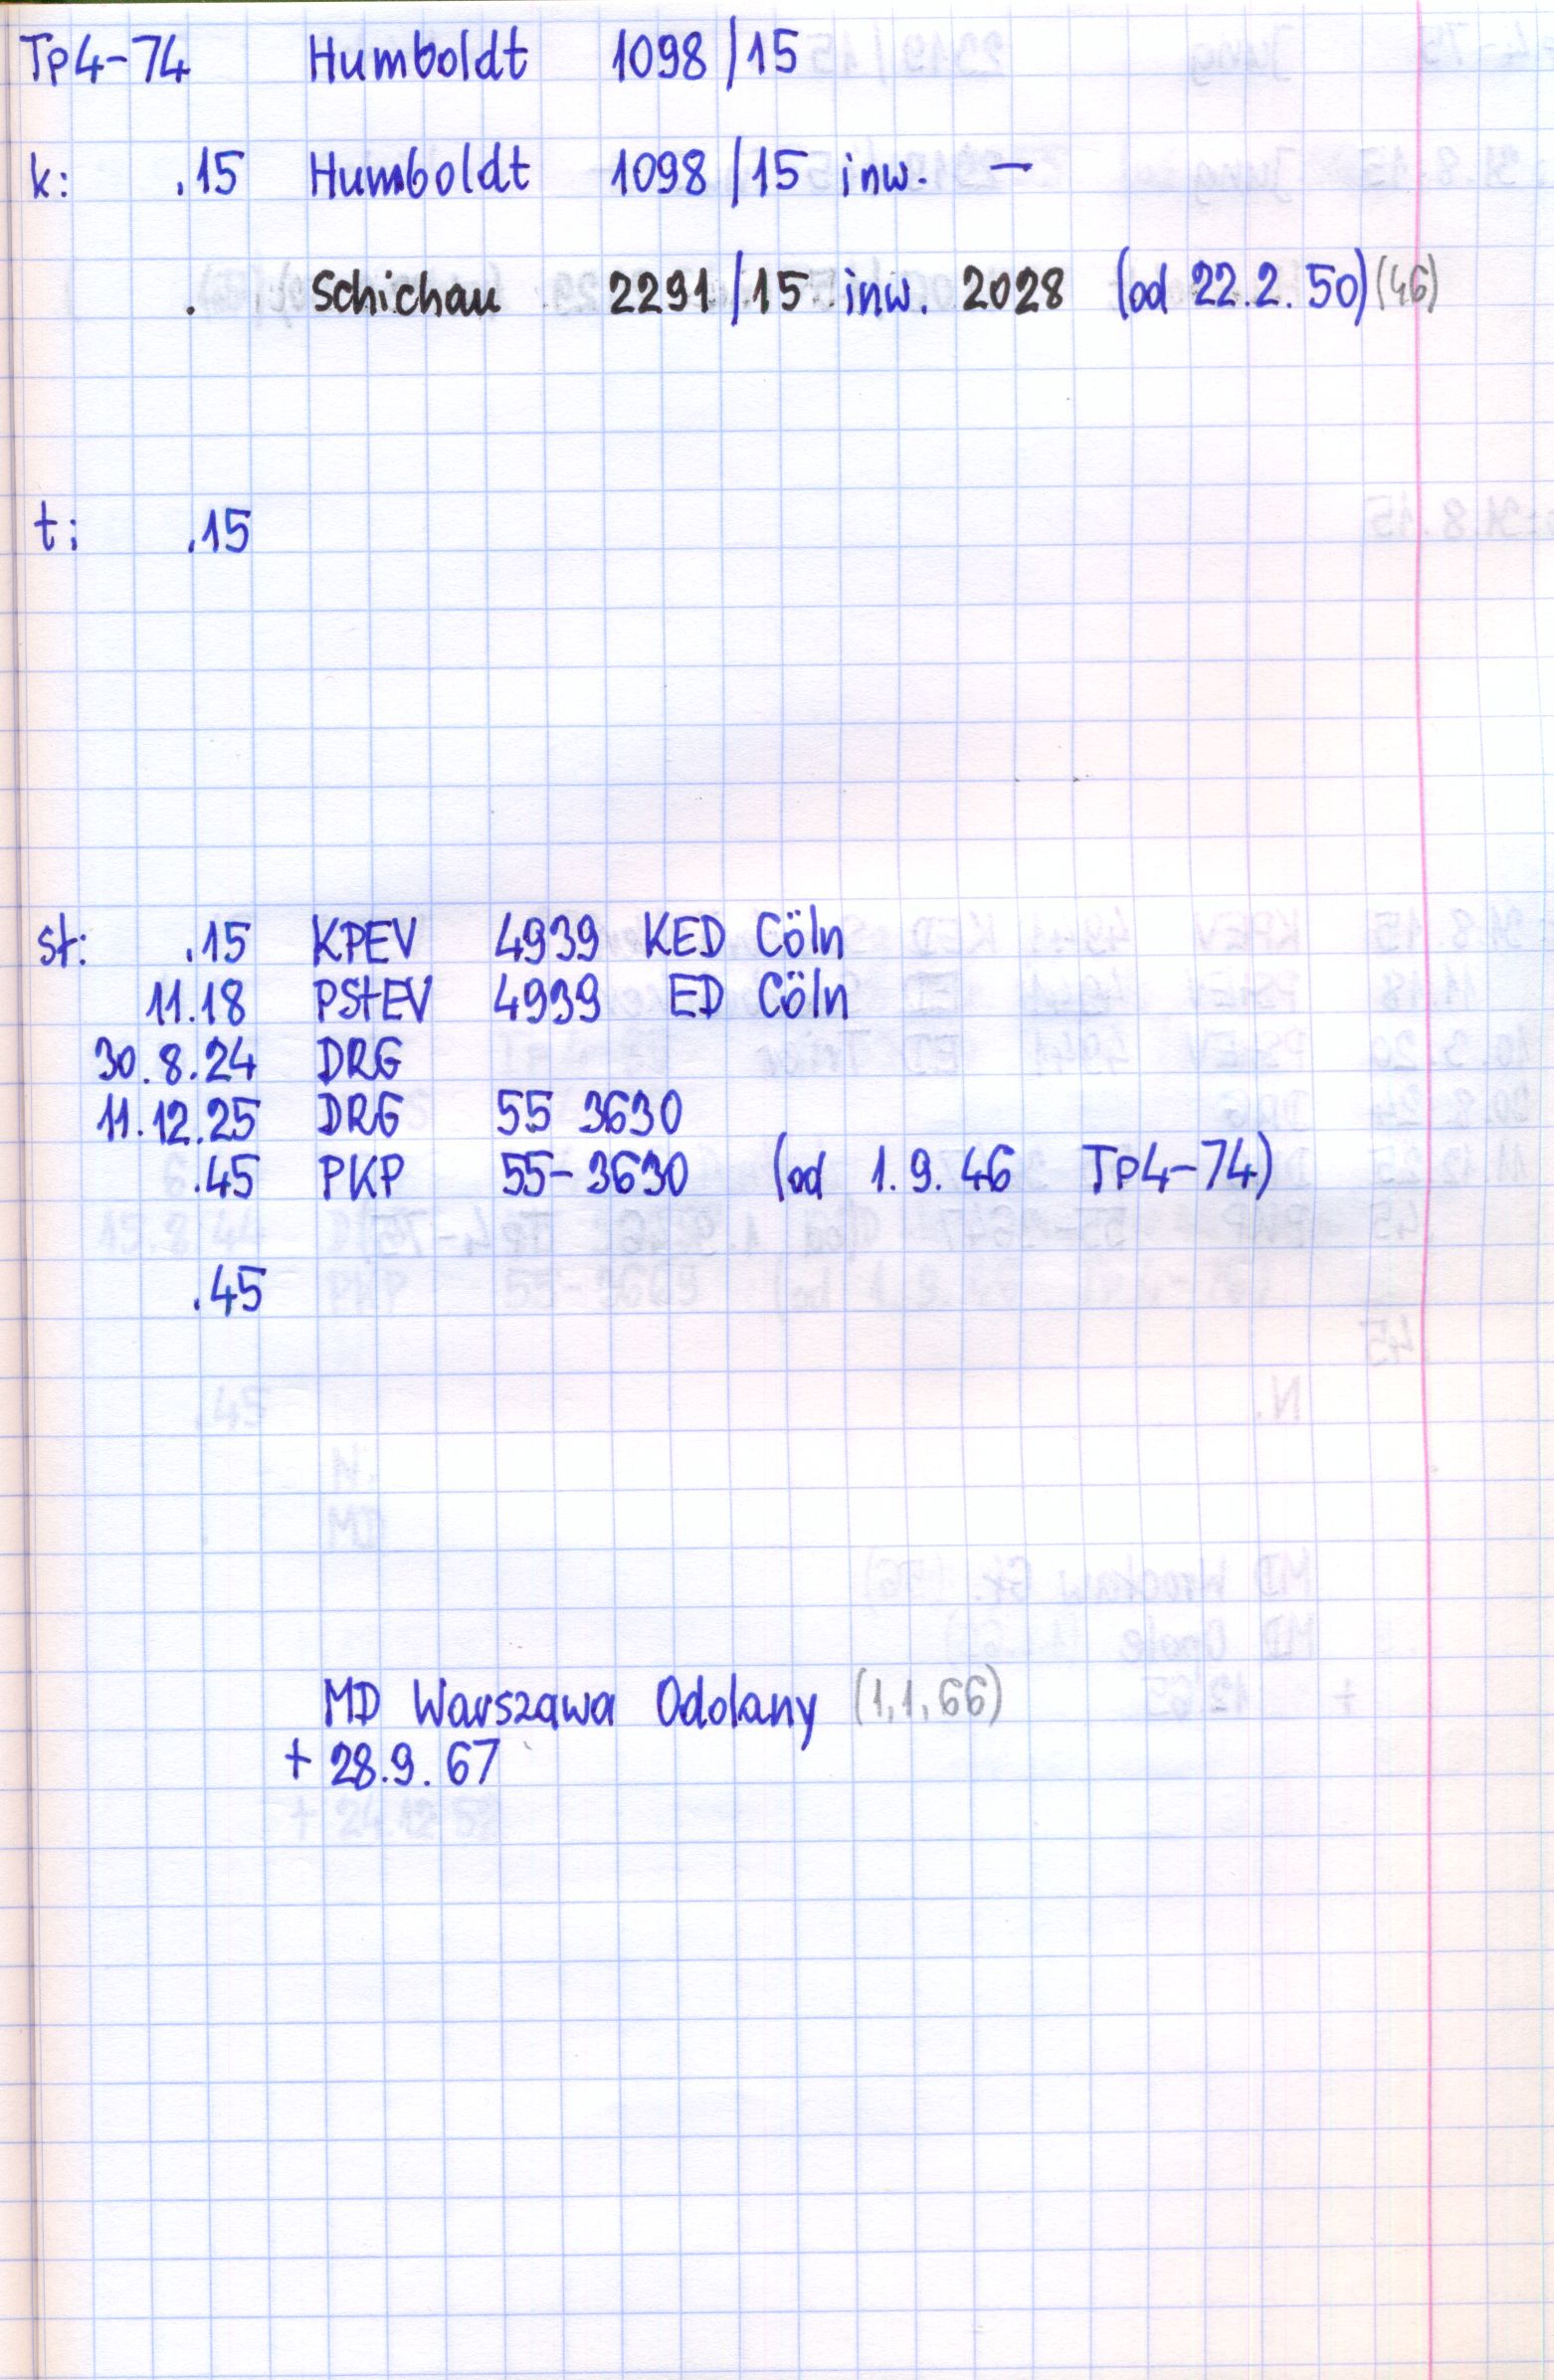 Tp4-74 Humboldt 1098/15
k: .15 Humboldt 1098/15 inw. –
. Schichau 2291/15 inw. 2028 (od 22.2.50) (46)
t: .15
st: .15 KPEV 4939 KED Cöln
11.18 PStEV 4939 ED Cöln
30.8.24 DRG
11.12.25 DRG 55 3630
.45 PKP 55-3630 (od 1.9.46 Tp4-74)
.45
MD Warszawa Odolany (1.1.66)
+ 28.9.67